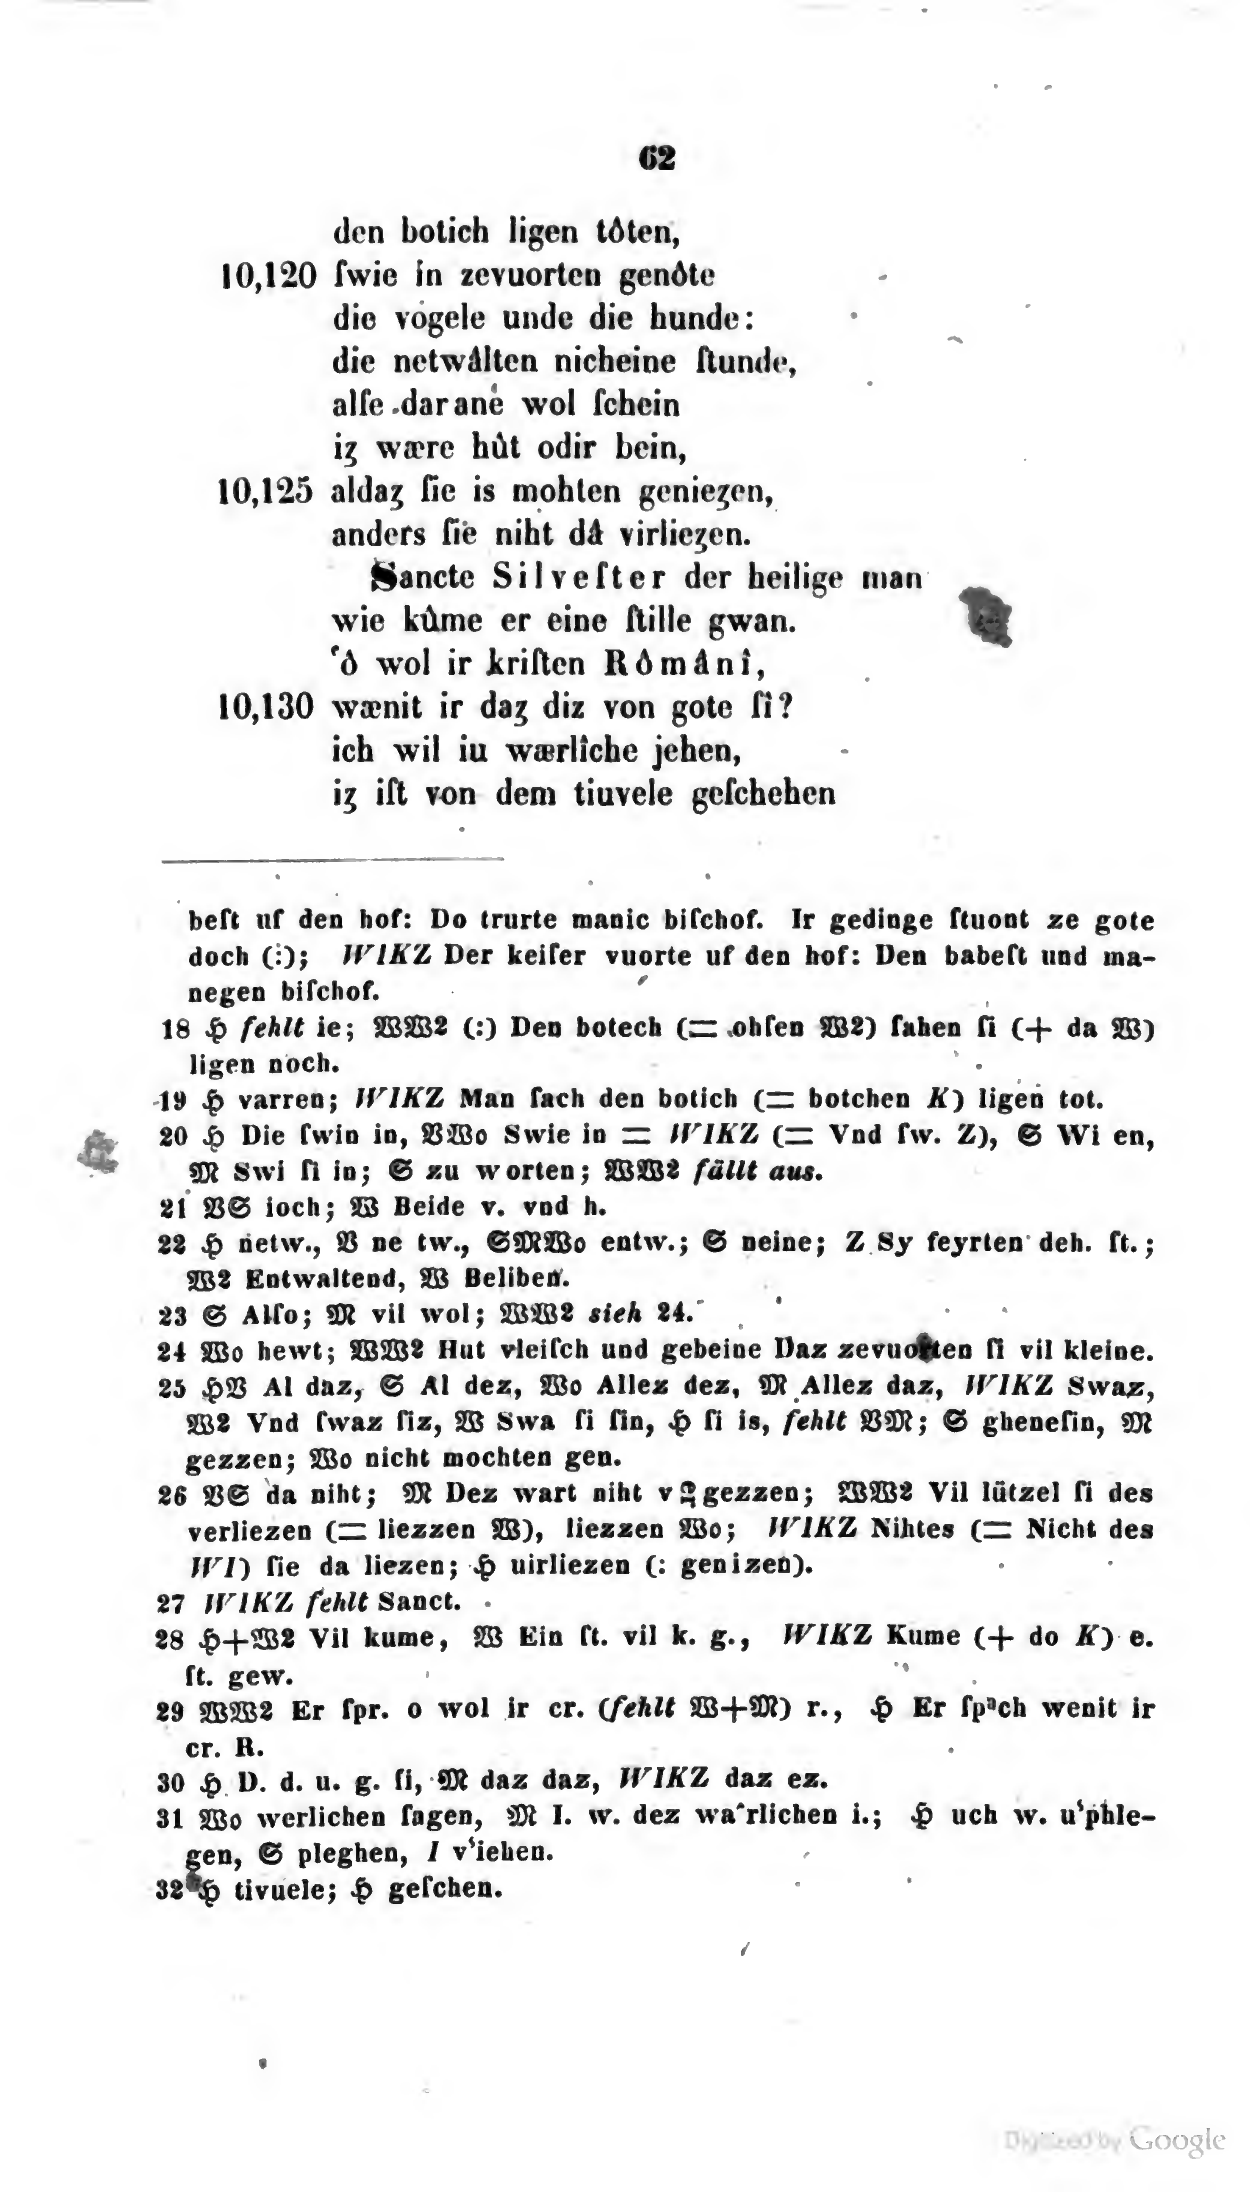 62
den botich ligen tôten,
10,120 ſwie in zevuorten genôte
die vogele unde die hunde:
die netwâlten nicheine ſtunde,
alſe dar ane wol ſchein
iʒ wære hût odir bein,
10,125 aldaʒ ſie is mohten genieʒen,
anders ſie niht dâ virlieʒen.
Sancte Silveſter der heilige man
wie kûme er eine ſtille gwan.
‘ô wol ir kriſten Rômânî,
10,130 wænit ir daʒ diz von gote ſî?
ich wil iu wærlîche jehen,
iʒ iſt von dem tiuvele geſchehen
beſt uf den hof: Do trurte manic biſchof. Ir gedinge ſtuont ze gote
doch (:); WIKZ Der keiſer vuorte uf den hof: Den babeſt und ma-
negen biſchof.
18 ℌ fehlt ie; 𝔚𝔚2 (:) Den botech (= ohſen 𝔚2) ſahen ſi (+ da 𝔚)
ligen noch.
19 ℌ varren; WIKZ Man ſach den botich (= botchen K) ligen tot.
20 ℌ Die ſwin in, 𝔙𝔚o Swie in = WIKZ (= Vnd ſw. Z), 𝔖 Wi en,
𝔐 Swi ſi in; 𝔖 zu worten; 𝔚𝔚2 fällt aus.
21 𝔙𝔖 ioch; 𝔚 Beide v. vnd h.
22 ℌ netw., 𝔙 ne tw., 𝔖𝔐𝔚o entw.; 𝔖 neine; Z Sy feyrten deh. ſt.;
𝔚2 Entwaltend, 𝔚 Beliben.
23 𝔖 Alſo; 𝔐 vil wol; 𝔚𝔚2 sieh 24.
24 𝔚o hewt; 𝔚𝔚2 Hut vleiſch und gebeine Daz zevuorten ſi vil kleine.
25 ℌ𝔙 Al daz, 𝔖 Al dez, 𝔚o Allez dez, 𝔐 Allez daz, WIKZ Swaz,
𝔚2 Vnd ſwaz ſiz, 𝔚 Swa ſi ſin, ℌ ſi is, fehlt 𝔙𝔐; 𝔖 gheneſin, 𝔐
gezzen; 𝔚o nicht mochten gen.
26 𝔙𝔖 da niht; 𝔐 Dez wart niht v gezzen; 𝔚𝔚2 Vil lützel ſi des
verliezen (= liezzen 𝔚), liezzen 𝔚o; WIKZ Nihtes (= Nicht des
WI) ſie da liezen; ℌ uirliezen (: genizen).
27 WIKZ fehlt Sanct.
28 ℌ+𝔚2 Vil kume, 𝔚 Ein ſt. vil k. g., WIKZ Kume (+ do K) e.
ſt. gew.
29 𝔚𝔚2 Er ſpr. o wol ir cr. (fehlt 𝔚+𝔐) r., ℌ Er ſpᵃch wenit ir
cr. R.
30 ℌ D. d. u. g. ſi, 𝔐 daz daz, WIKZ daz ez.
31 𝔚o werlichen ſagen, 𝔐 I. w. dez wa'rlichen i.; ℌ uch w. u‘phle-
gen, 𝔖 pleghen, I v‘iehen.
32 ℌ tivuele; ℌ geſchen.
Digitized by Google